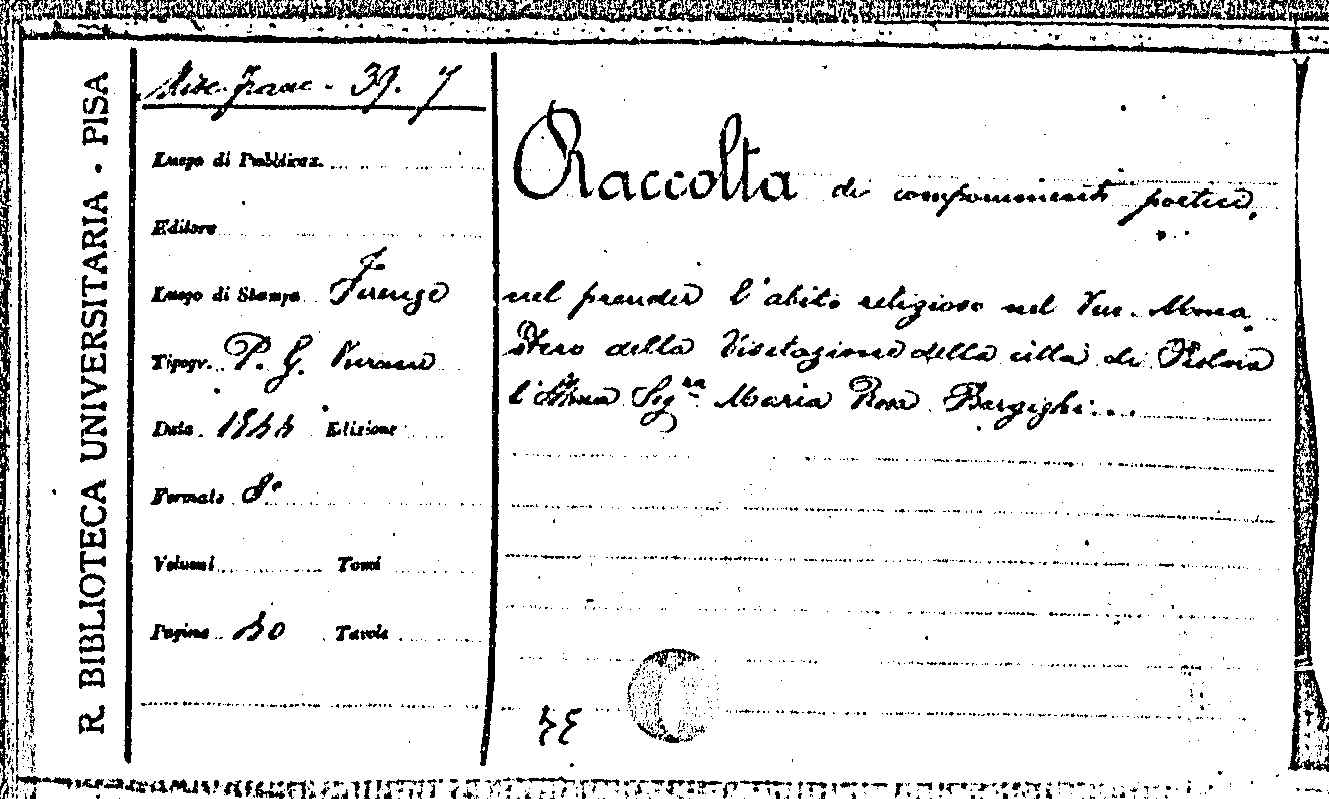 R. BIBLIOTECA UNIVERSITARIA - PISA
Misc. Franc. 39. 7
Luogo di Pubblicaz.
Editore
Luogo di Stampa Firenze
Tipogr. P. G.
Data 1844 Edizione
Formato 8°
Volumi Tomi
Pagine 40 Tavole
Raccolta di componimenti poetici,
nel prender l'abito religioso nel Ven. Mona
stero della Visitazione della città di
l' Sig.ra Maria Rosa Bargighi...